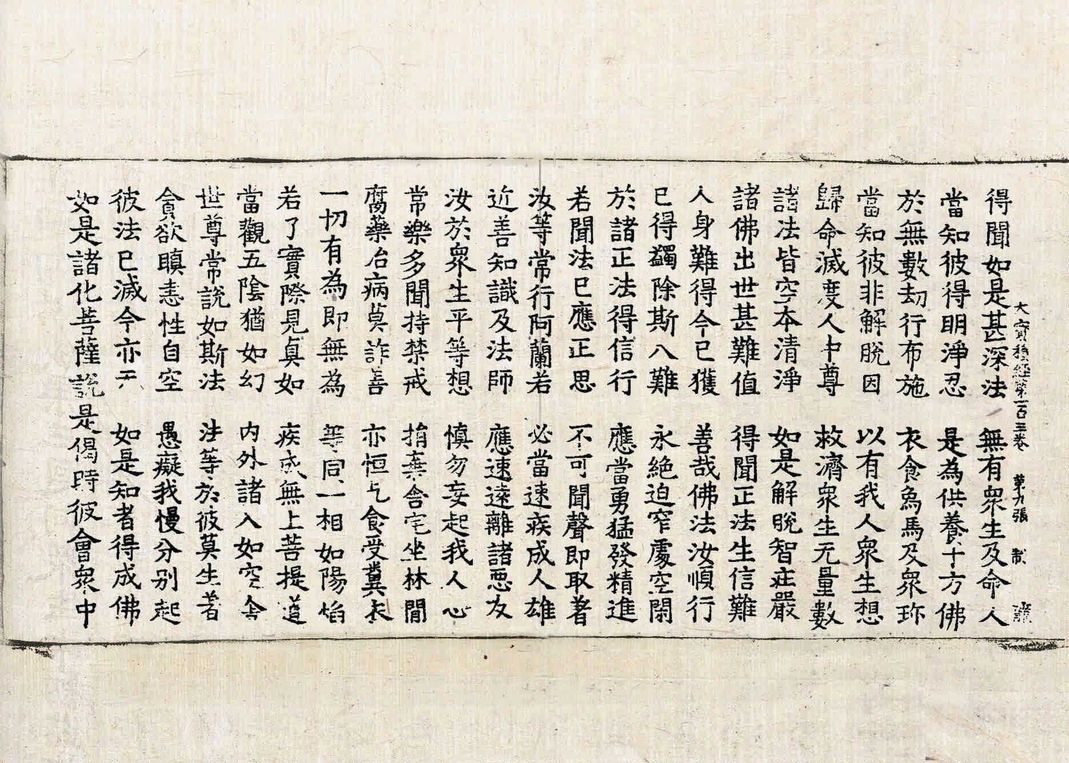 大寶積經第一百三卷　第九張　制
得聞如是甚深法　無有衆生及命人
當知彼得明淨忍　是為供養十方佛
於無數劫行布施　衣食象馬及衆珎
當知彼非解脫因　以有我人衆生想
歸命滅度人中尊　救濟衆生无量數
諸法皆空本清淨　如是解脫智莊嚴
諸佛出世甚難值　得聞正法生信難
人身難得今已獲　善哉佛法汝順行
已得蠲除斯八難　永絕迫窄處空閑
於諸正法得信行　應當勇猛發精進
若聞法已應正思　不可聞聲即取著
汝等常行阿蘭若　必當速疾成人雄
近善知識及法師　應速遠離諸惡友
汝於衆生平等想　慎勿妄起我人心
常樂多聞持禁戒　捐棄舍宅坐林間
腐藥治病莫詐善　亦恒乞食受糞衣
一切有為即無為　等同一相如陽焰
若了實際見真如　疾成無上菩提道
當觀五陰猶如幻　內外諸入如空舍
世尊常說如斯法　法等於彼莫生著
貪欲瞋恚性自空　愚癡我慢分別起
彼法已滅今亦无　如是知者得成佛
如是諸化菩薩說是偈時彼會衆中